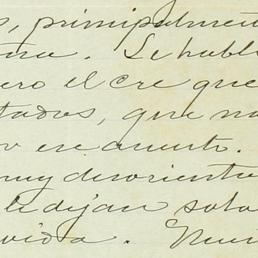 s, principalmen
ña. Le habl
ero el cre que
tados, que no
o ese asunto.
muy desorienta
le dejan solo
vida.